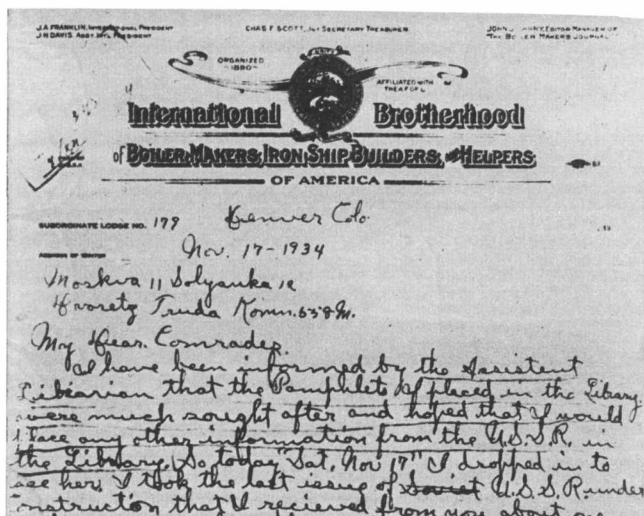 J.A. FRANKLIN, INTERNATIONAL PRESIDENT
J.N. DAVIS, ASST. INT'L PRESIDENT
CHAS F. SCOTT, INT SECRETARY TREASURER
EDITOR MANAGER OF
THE BOILER MAKERS JOURNAL
ORGANIZED
1880
AFFILIATED WITH
THE A F OF L
International Brotherhood
of BOILER MAKERS, IRON SHIP BUILDERS, and HELPERS
OF AMERICA
SUBORDINATE LODGE NO. 179 Denver Colo.
Nov. 17-1934
Moskva 11 Solyanka 12
Dvoretz Truda Komn. 558 M.
My Dear Comrades,
I have been informed by the Assistent
Librarian that the Pamphlets I placed in the Library
were much sought after and hoped that I would
place any other information from the U.S.S.R. in
the Library. So today "Sat, Nov 17" I dropped in to
see her. I took the last issue of Soviet U.S.S.R. under
onstruction that I recieved from you about